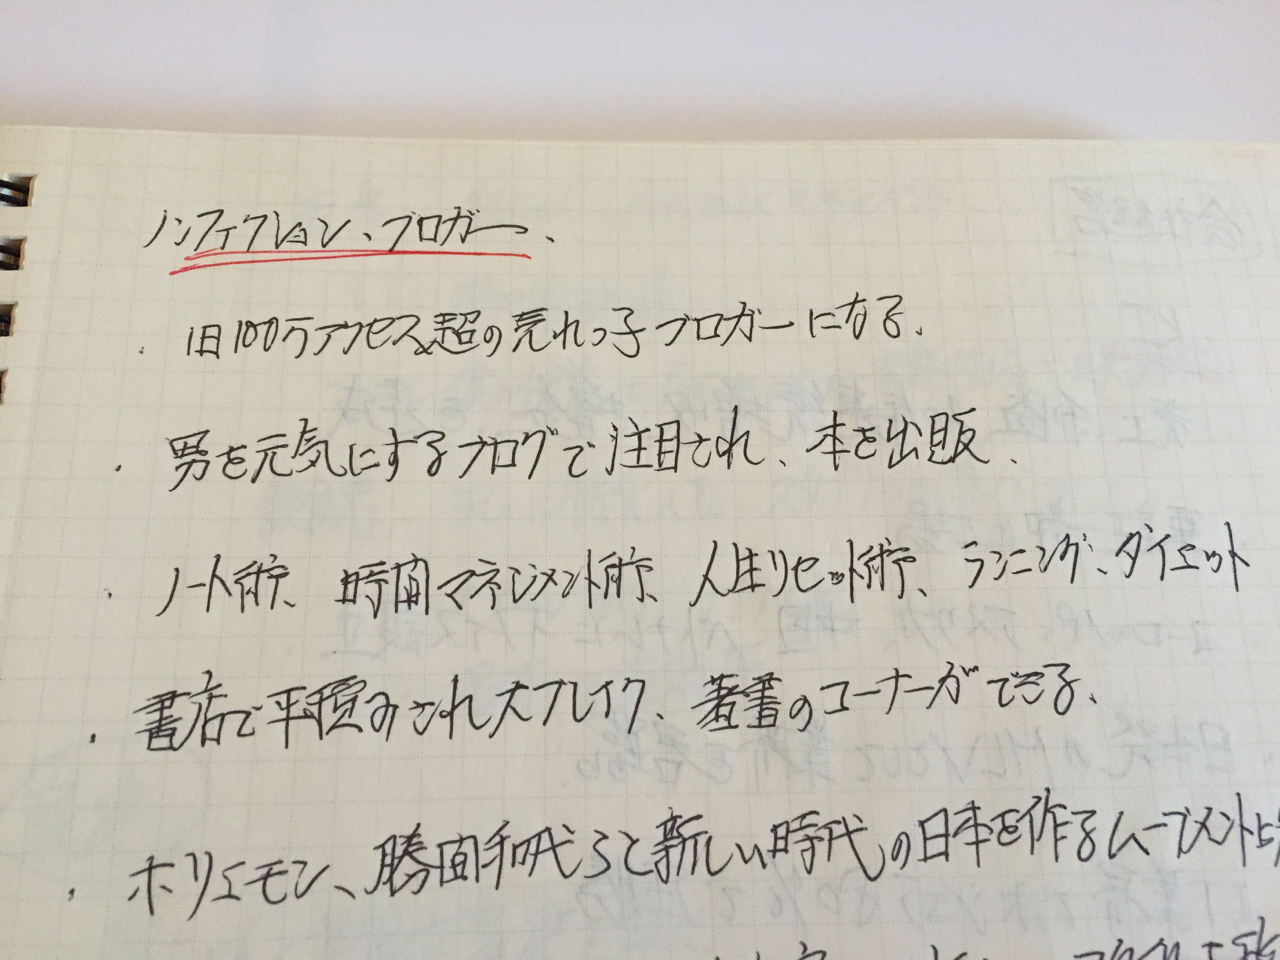 ノンフィクション、ブロガー、
・1日100万アクセス超の売れっ子ブロガーになる、
・男を元気にするブログで注目され、本を出版、
・ノート術、時間マネジメント術、人生リセット術、ランニング、ダイエット
・書店で平積みされ大ブレイク、著書のコーナーができる、
・ホリエモン、勝間和代らと新しい時代の日本を作るムーブメント